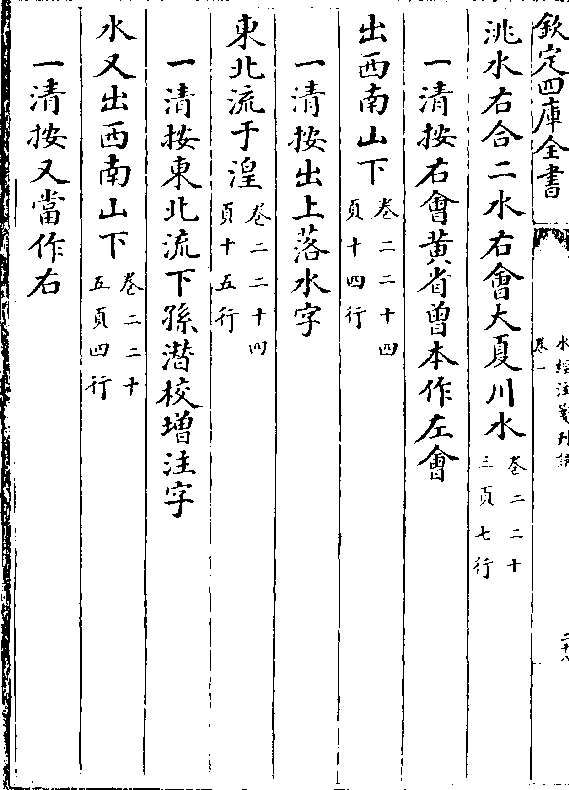 欽定四庫全書
水經注箋刊誤
卷一
二十八
洮水右合二水右會大夏川水卷二二十三頁七行
一清按右會黄省曾本作左會
出西南山下卷二二十四頁十四行
一清按出上落水字
東北流于湟卷二二十四頁十五行
一清按東北流下孫潜校增注字
水又出西南山下卷二二十五頁四行
一清按又當作右